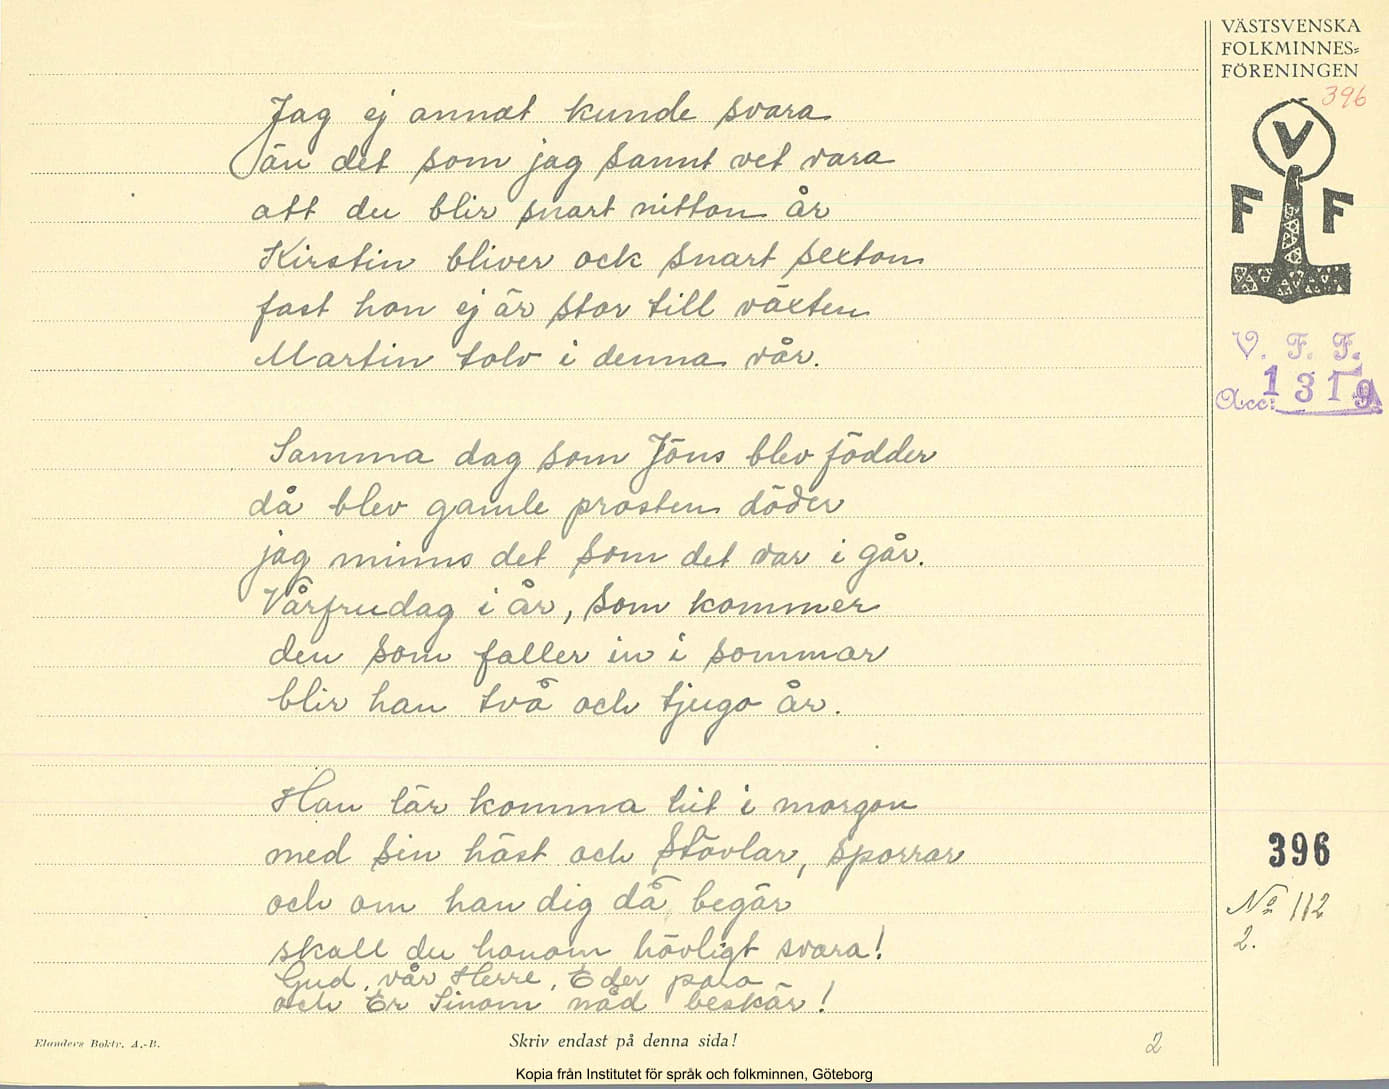 VÄSTSVENSKA
FOLKMINNES=
FÖRENINGEN
396
V
F F
V. F. F.
Acc: 1319
Jag ej annat kunde svara
än det som jag sannt vet vara
att du blir snart nitton år
Kirstin bliver ock snart sexton
fast hon ej är stor till växten
Martin tolv i denna vår.
Samma dag som Jöns blev födder
då blev gamle prosten döder
jag minns det som det var i går.
Vårfrudag i år, som kommer
den som faller in i sommar
blir han två och tjugo år.
Han lär komma hit i morgon
med sin häst och stövlar, sporrar
och om han dig då begär
skall du honom hövligt svara!
Gud, vår Herre, Eder
och Er Sinom nåd beskär!
396
No 112
2.
Elanders Boktr. A.-B.
Skriv endast på denna sida!
2
Kopia från Institutet för språk och folkminnen, Göteborg